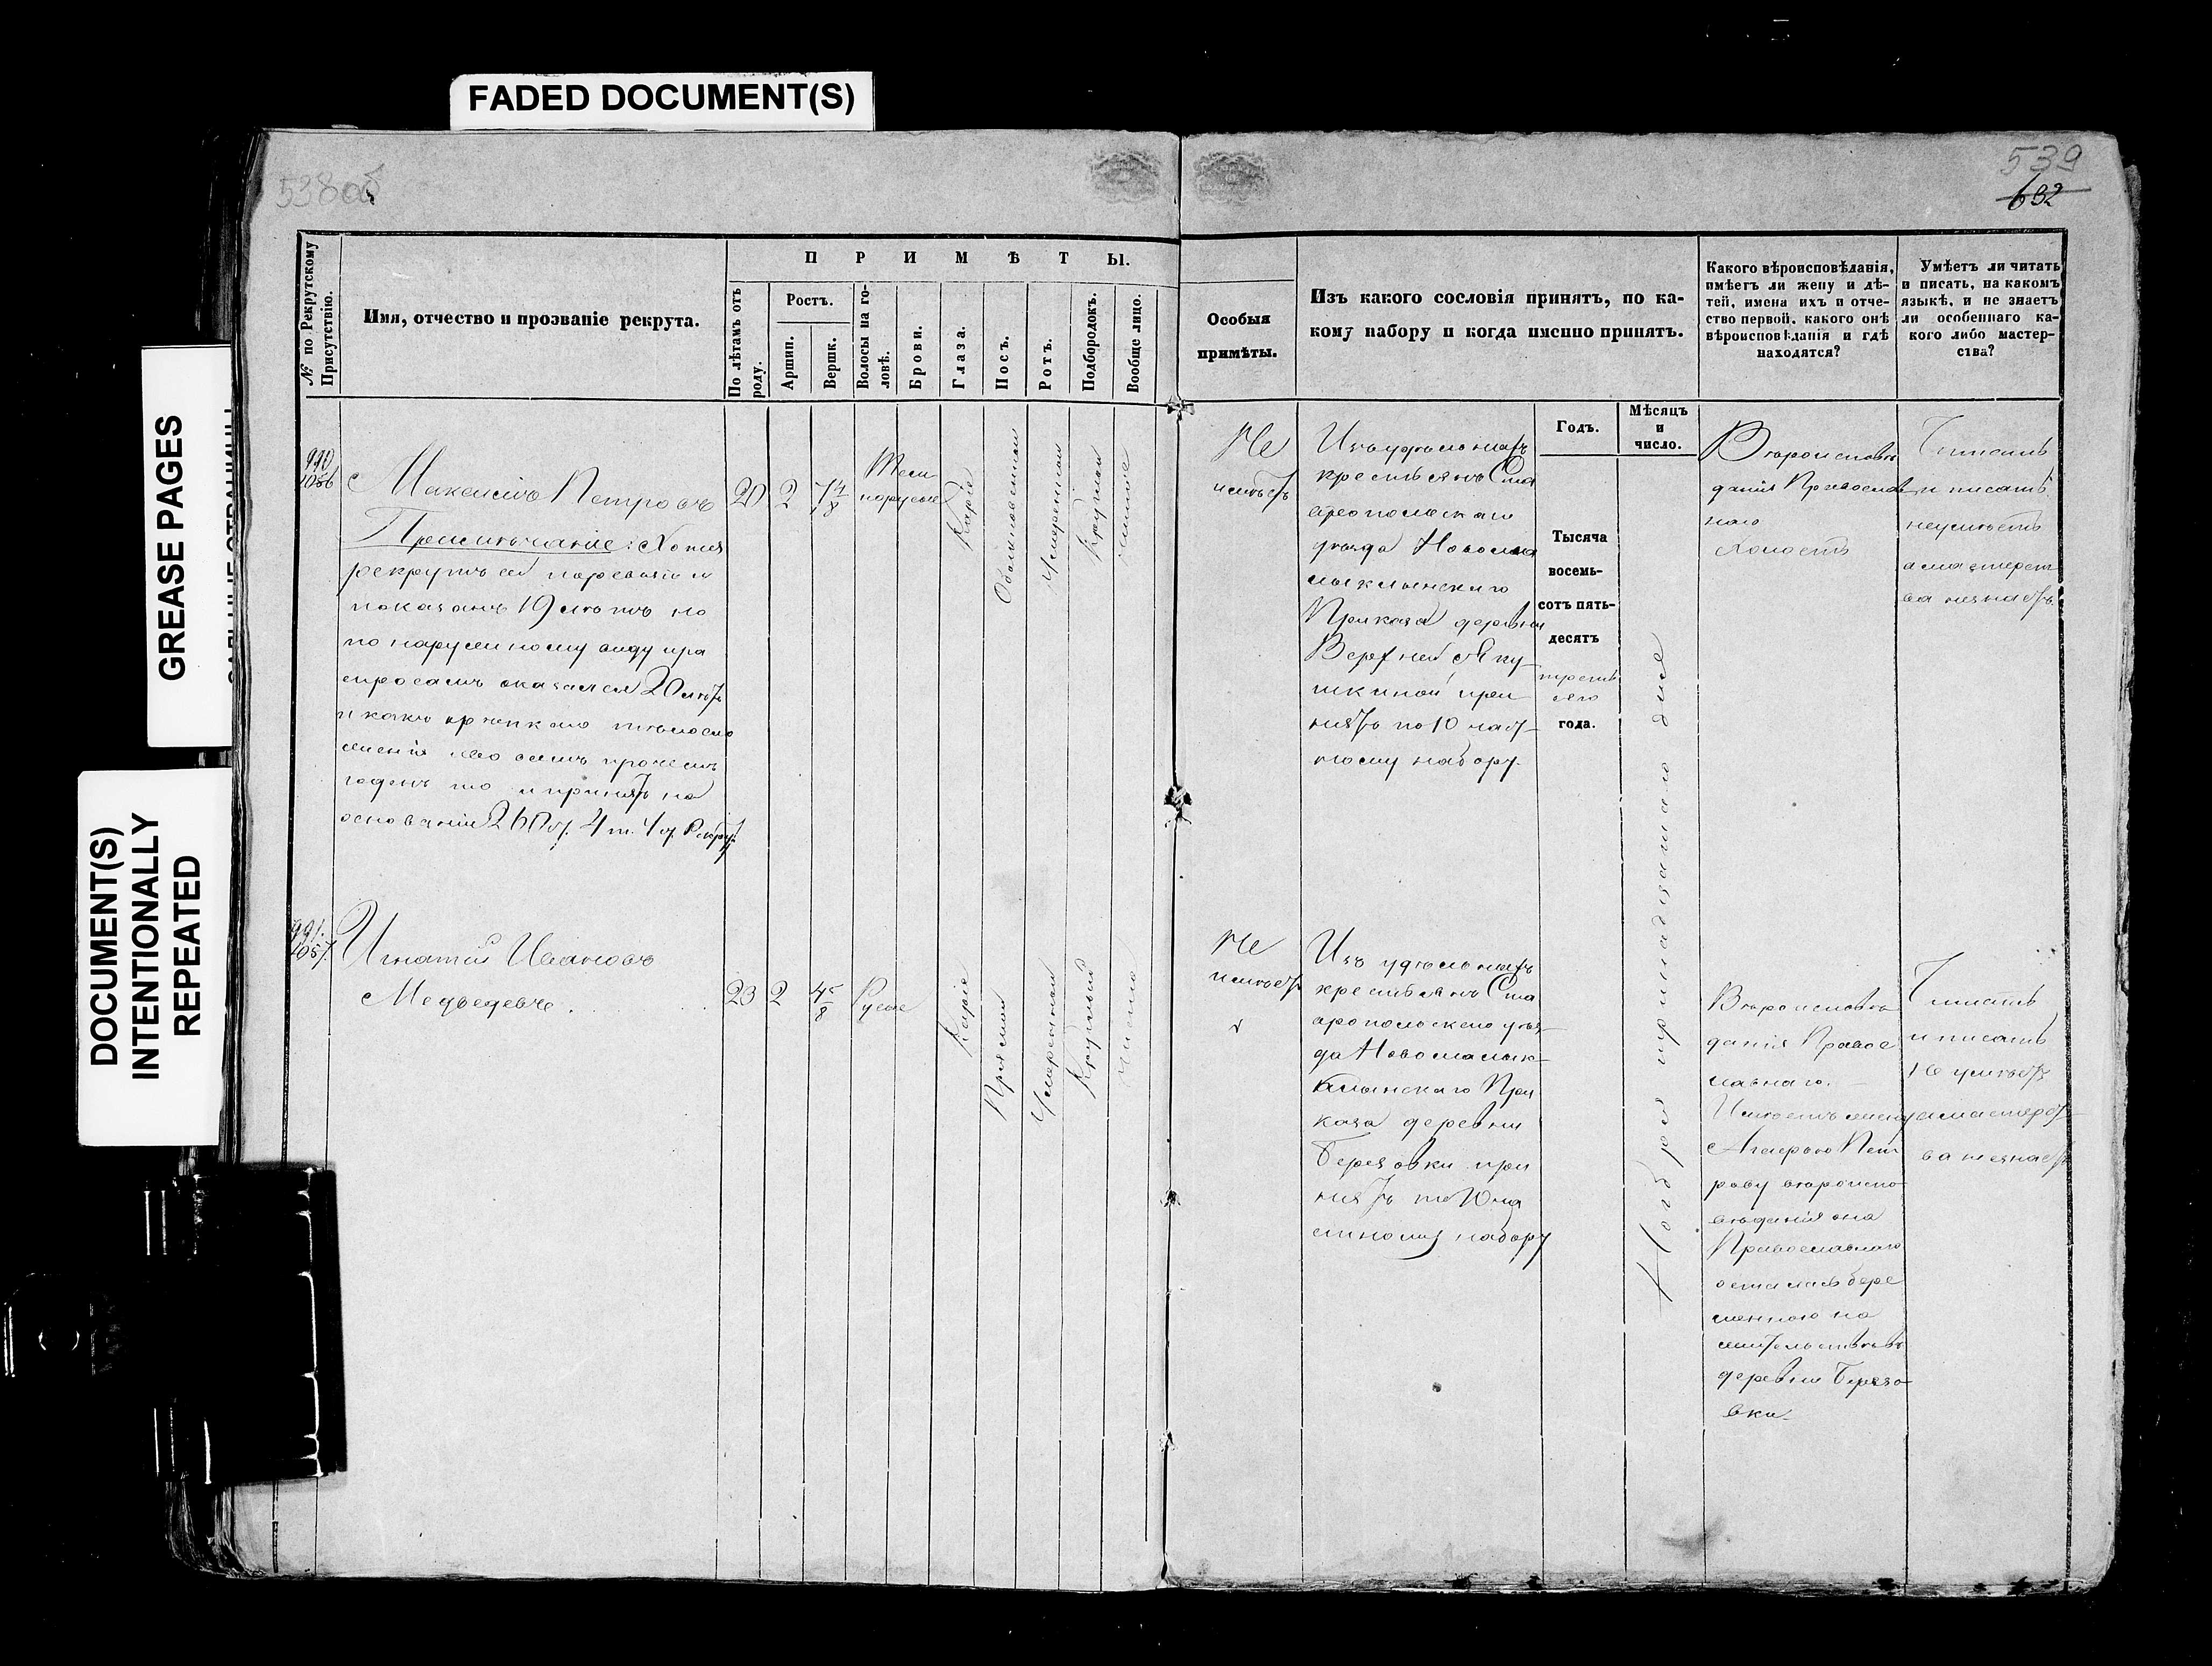 FADED DOCUMENT(S)
GREASE PAGES
DOCUMENT(S)
INTENTIONALLY
REPEATED
538об
539
632
№ по Рекрутскому
Присутствію.
Имя, отчество и прозваніе рекрута.
ПРИМѢТЫ.
По лѣтамъ отъ
роду.
Ростъ.
Аршин.
Вершк.
Волосы на го-
ловѣ.
Брови.
Глаза.
Носъ.
Ротъ.
Подбородокъ.
Вообще лицо.
Особыя
примѣты.
Изъ какого сословія принятъ, по ка-
кому набору и когда именно принятъ.
Какого вѣроисповѣданія,
имѣетъ ли жену и дѣ-
тей, имена ихъ и отче-
ство первой, какого онѣ
вѣроисповѣданія и гдѣ
находятся?
Умѣетъ ли читать
и писать, на какомъ
языкѣ, и не знаетъ
ли особеннаго ка-
кого либо мастер-
ства?
Годъ.
Мѣсяцъ
и
число.
990
1056
Максимъ Петровъ
Примѣчаніе: Хотя
рекрутъ сей по ревизіи и
показанъ 19 лѣтъ но
по наружному виду и ра
спросамъ оказался 20 лѣтъ
и какъ крѣпкаго тѣлосло
женія во всемъ прочемъ
годенъ то и принятъ на
основаніи
20
2
7 4/8
Тем
норусые
Каріе
Обыкновенный
Умѣренный
Круглый
чистое
Не
имѣетъ
Изъ удѣльныхъ
крестьянъ Ста
вропольскаго
уѣзда Новома
лыклинскаго
Приказа деревни
Верхней Яку
шкиной при
нятъ по 10 част
ному набору.
Тысяча
восемь-
сотъ пять-
десятъ
третьяго
года.
Ноября тринадцатаго дня
Вѣроисповѣ
данія Православ
наго
Холостъ
Читать
и писать
неумѣетъ
а мастерст
ва незнаетъ.
991.
1057.
Игнатій Ивановъ
Медведевъ
23
2
4 5/8
Русые
Каріе
Прямой
Умѣренный
Круглый
чистое
Не
имѣетъ
Изъ удѣльныхъ
крестьянъ Ста
вропольскаго уѣз
да Новомалык
клинскаго При
каза деревни
Березовки при
нятъ по 10 ча
стному набору
Вѣроисповѣ
данія Правос
лавнаго.
Имѣетъ жену
Агафью Пет
рову вѣроиспо
вѣданія она
Православнаго
осталась бере
менною на
жительствѣ въ
деревни Березо
вки.
Читать
и писать
не умѣетъ
а мастерст
ва незнаетъ